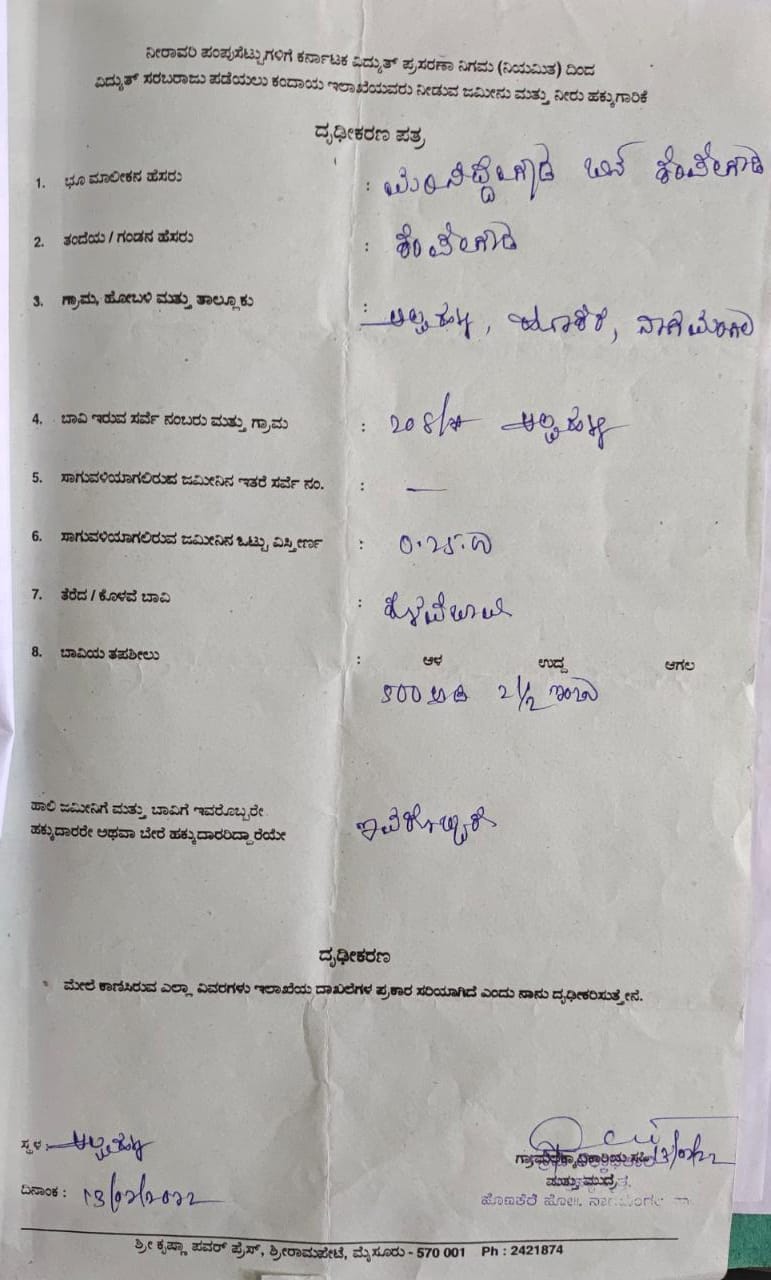 ನೀರಾವರಿ ಪಂಪುಸೆಟ್ಟುಗಳಿಗೆ ಕರ್ನಾಟಕ ವಿದ್ಯುತ್ ಪ್ರಸರಣಾ ನಿಗಮ (ನಿಯಮಿತ) ದಿಂದ
ವಿದ್ಯುತ್ ಸರಬರಾಜು ಪಡೆಯಲು ಕಂದಾಯ ಇಲಾಖೆಯವರು ನೀಡುವ ಜಮೀನು ಮತ್ತು ನೀರು ಹಕ್ಕುಗಾರಿಕೆ
ದೃಢೀಕರಣ ಪತ್ರ
1. ಭೂ ಮಾಲೀಕನ ಹೆಸರು : ಬಿನ್ ಕೆಂಪೇಗೌಡ
2. ತಂದೆಯ / ಗಂಡನ ಹೆಸರು : ಕೆಂಪೇಗೌಡ
3. ಗ್ರಾಮ, ಹೋಬಳಿ ಮತ್ತು ತಾಲ್ಲೂಕು : ನಾಗಮಂಗಲ
4. ಬಾವಿ ಇರುವ ಸರ್ವೆ ನಂಬರು ಮತ್ತು ಗ್ರಾಮ :
5. ಸಾಗುವಳಿಯಾಗಲಿರುವ ಜಮೀನಿನ ಇತರೆ ಸರ್ವೆ ನಂ. : —
6. ಸಾಗುವಳಿಯಾಗಲಿರುವ ಜಮೀನಿನ ಒಟ್ಟು ವಿಸ್ತೀರ್ಣ : 0.25.0
7. ತೆರೆದ / ಕೊಳವೆ ಬಾವಿ : ಕೊಳವೆಬಾವಿ
8. ಬಾವಿಯ ತಪಶೀಲು : ಆಳ ಉದ್ದ ಆಗಲ
ಅಡಿ 2 1/2 ಇಂಚು
ಹಾಲಿ ಜಮೀನಿಗೆ ಮತ್ತು ಬಾವಿಗೆ ಇವರೊಬ್ಬರೇ
ಹಕ್ಕುದಾರರೇ ಅಥವಾ ಬೇರೆ ಹಕ್ಕುದಾರರಿದ್ದಾರೆಯೇ ಇವರೊಬ್ಬರೆ
ದೃಢೀಕರಣ
ಮೇಲೆ ಕಾಣಿಸಿರುವ ಎಲ್ಲಾ ವಿವರಗಳು ಇಲಾಖೆಯ ದಾಖಲೆಗಳ ಪ್ರಕಾರ ಸರಿಯಾಗಿದೆ ಎಂದು ನಾನು ದೃಢೀಕರಿಸುತ್ತೇನೆ.
ಸ್ಥಳ :
ದಿನಾಂಕ : 13/02/2022
ಮತ್ತು ಮುದ್ರೆ
ಶ್ರೀ ಕೃಷ್ಣಾ ಪವರ್ ಪ್ರೆಸ್, ಶ್ರೀರಾಮಪೇಟೆ, ಮೈಸೂರು - 570 001 Ph : 2421874